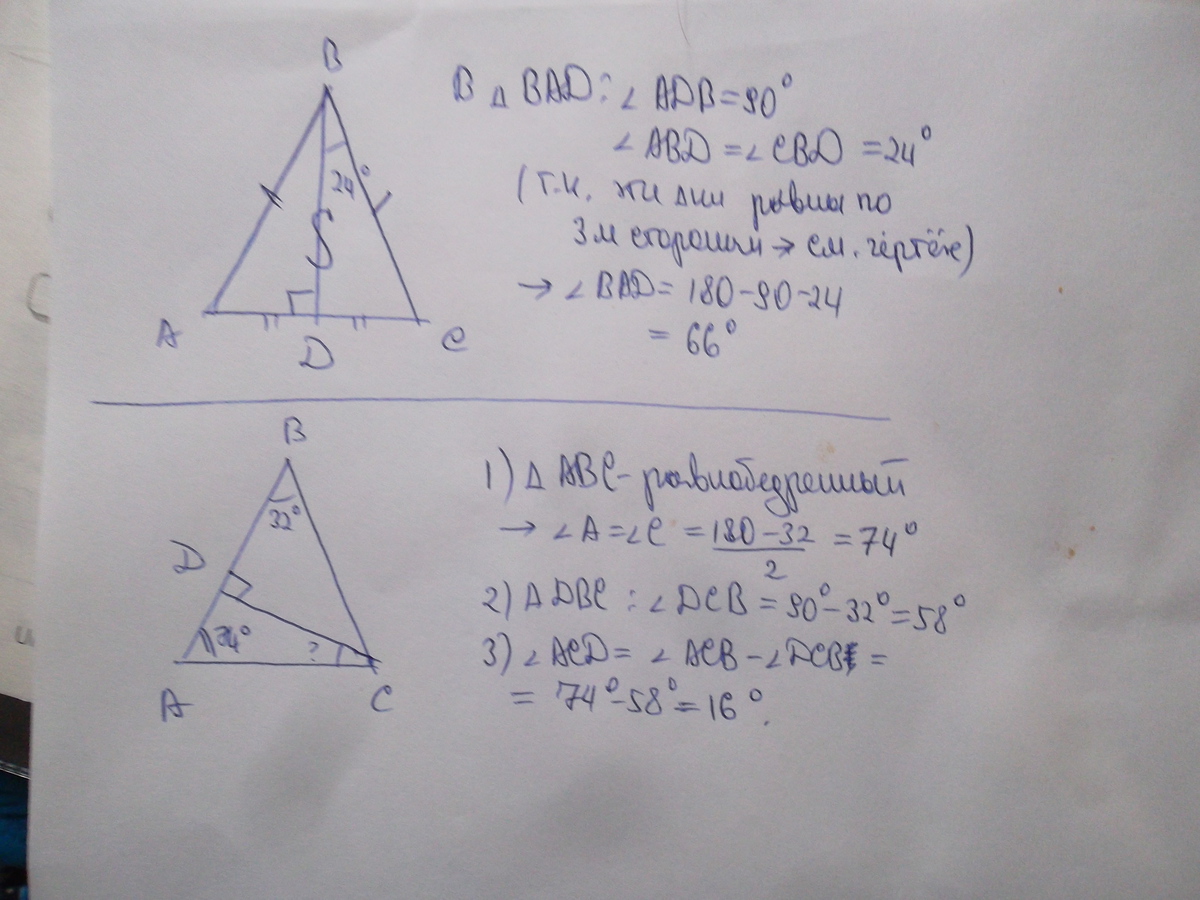 B
24°
A
D
C
В △ BAD: ∠ ADB = 90°
∠ ABD = ∠ CBD = 24°
(т.к. эти △ики равны по
3м сторонам → см. чертёж)
→ ∠ BAD = 180-90-24
= 66°
B
32°
D
74°
?
A
C
1) △ ABC - равнобедренный
→ ∠ A = ∠ C = 180-32 / 2 = 74°
2) △ DBC : ∠ DCB = 90° - 32° = 58°
3) ∠ ACD = ∠ ACB - ∠ DCB =
= 74° - 58° = 16°.